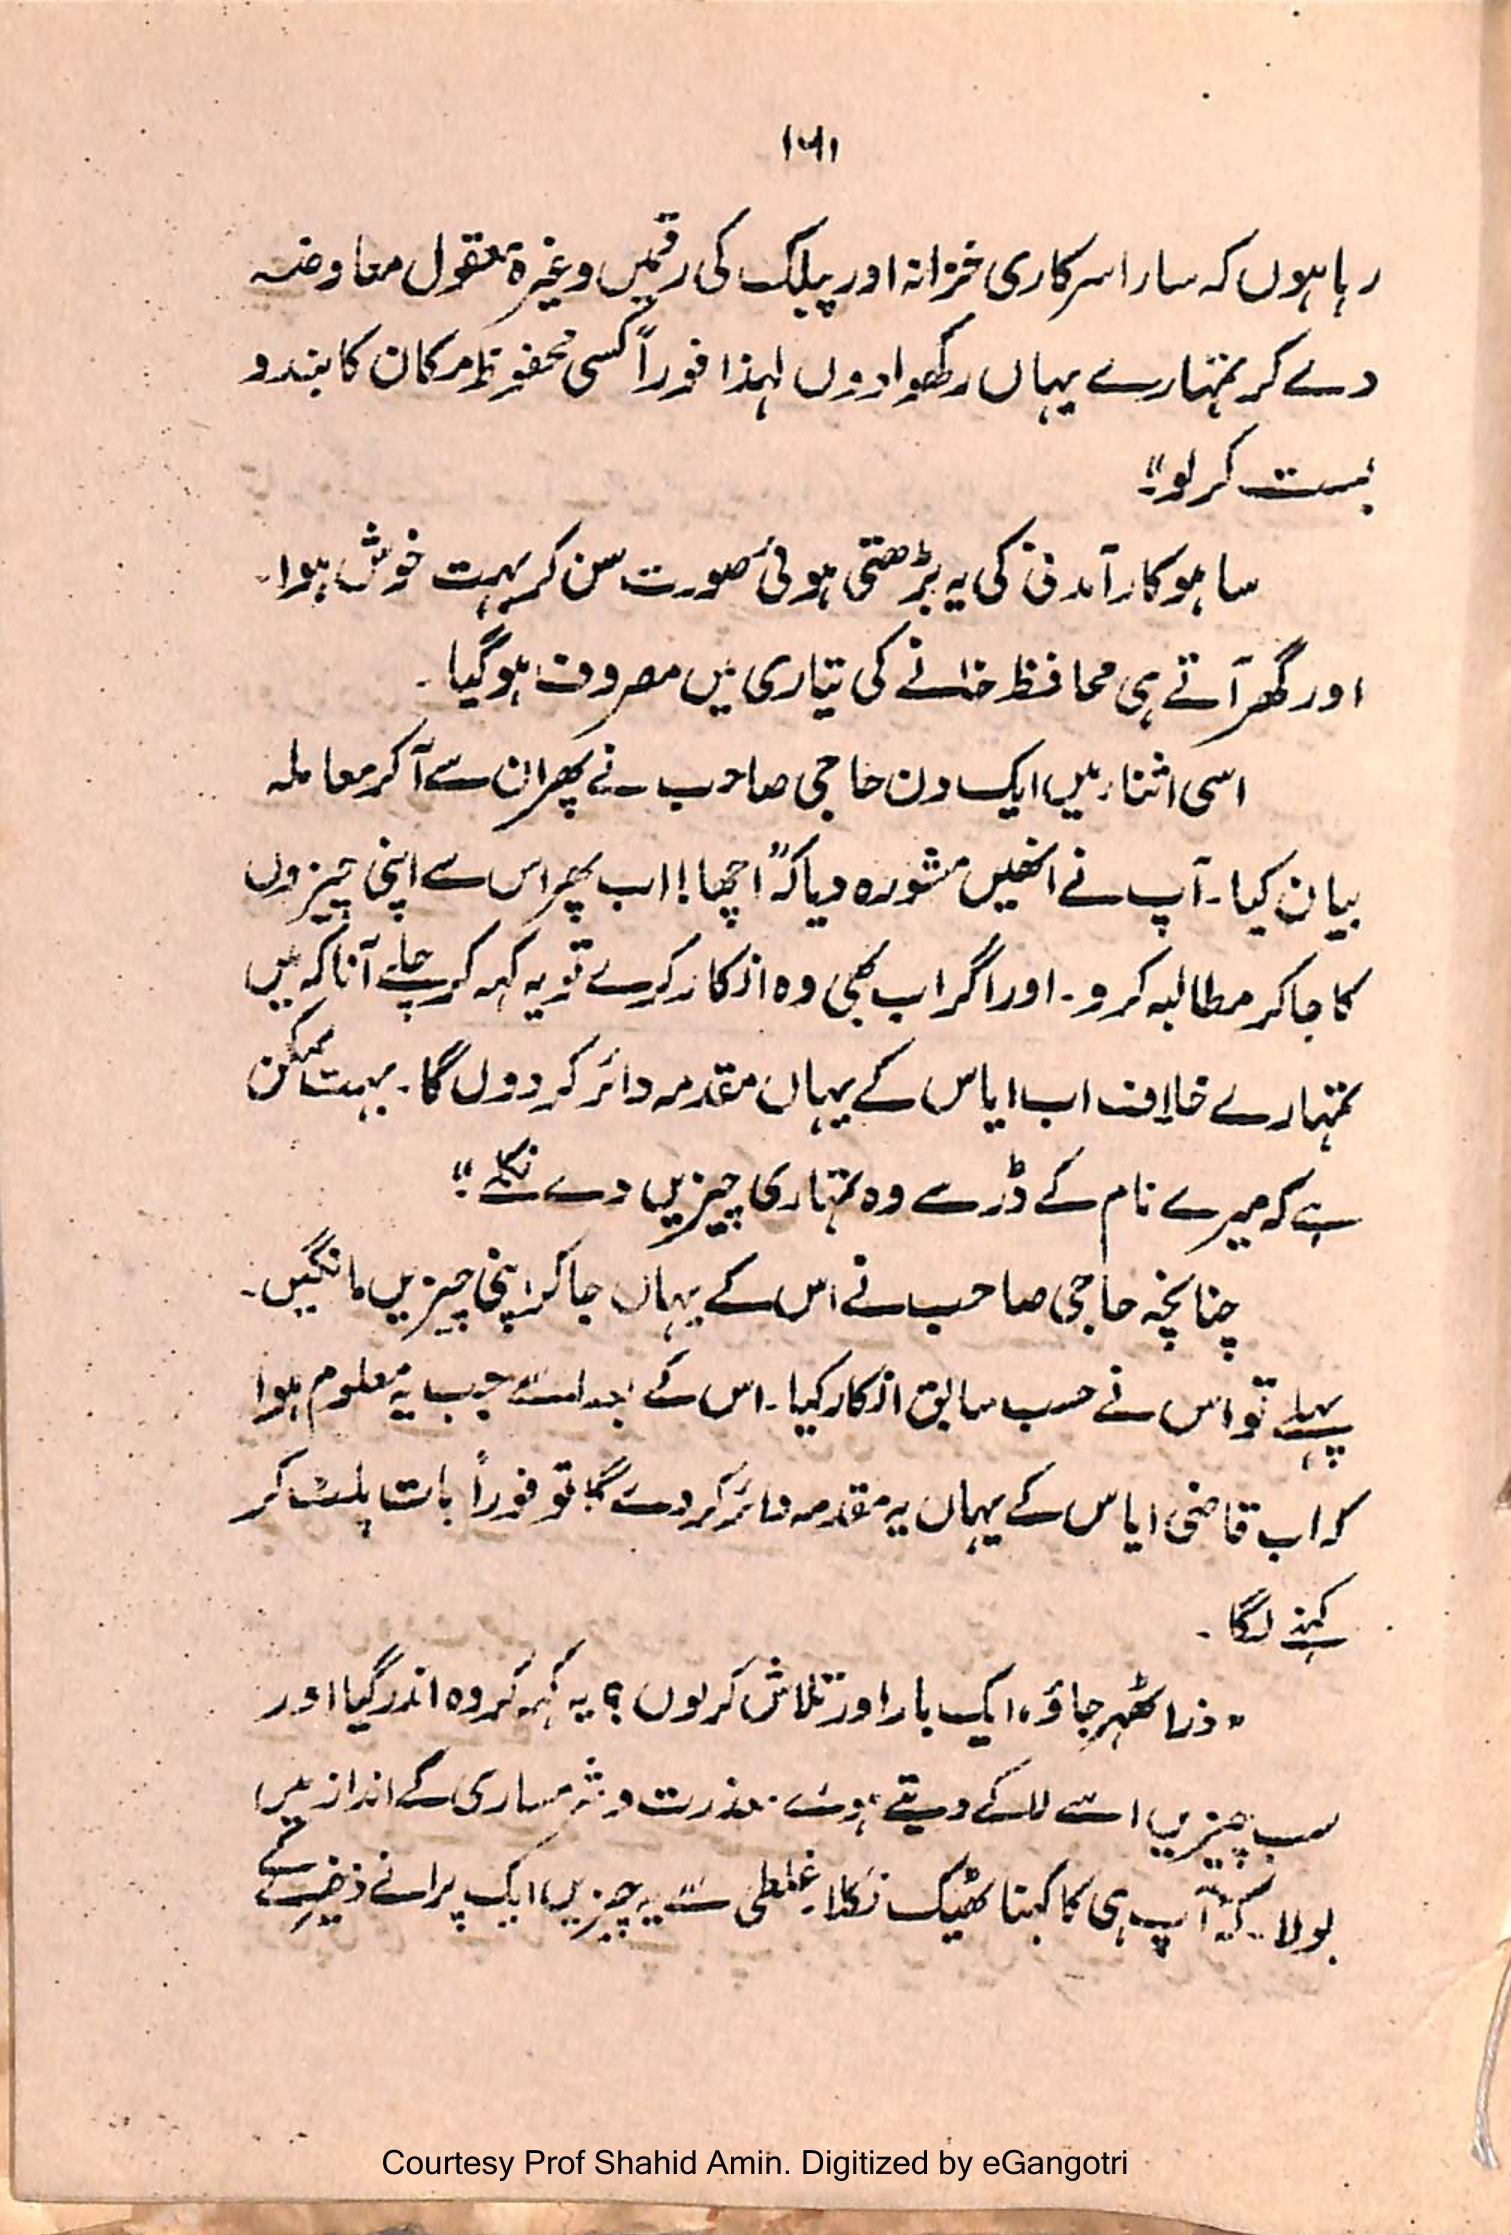 ۱۶۱
رہا ہوں کہ سارا سرکاری خزانہ اور پبلک کی رقمیں وغیرہ معقول معاوضہ
دے کر تمہارے یہاں رکھوا دوں لہذا فوراً کسی محفوظ مکان کا بندو
بست کر لو"۔
ساہوکار آمدنی کی یہ بڑھتی ہوئی صورت سن کر بہت خوش ہوا۔
اور گھر آتے ہی محافظ خانے کی تیاری میں مصروف ہوگیا۔
اسی اثنار میں ایک دن حاجی صاحب نے پھر ان سے آکر معاملہ
بیان کیا۔ آپ نے انھیں مشورہ دیا کہ "اچھا! اب پھر اس سے اپنی چیزوں
کا جاکر مطالبہ کرو۔ اور اگر اب بھی وہ انکار کرے تو یہ کہہ کر چلے آنا کہ میں
تمہارے خلاف اب ایاس کے یہاں مقدمہ دائر کر دوں گا۔ بہت ممکن
ہے کہ میرے نام کے ڈر سے وہ تمہاری چیزیں دے نکلے"۔
چنانچہ حاجی صاحب نے اس کے یہاں جاکر اپنی چیزیں مانگیں۔
پہلے تو اس نے حسب سابق انکار کیا۔ اس کے بعد اسے جب یہ معلوم ہوا
کہ اب قاضی ایاس کے یہاں یہ مقدمہ دائر کر دے گا، تو فوراً بات پلٹ کر
کہنے لگا۔
"ذرا ٹھہر جاؤ، ایک بار اور تلاش کر لوں؟ یہ کہہ کر وہ اندر گیا اور
سب چیزیں اسے لاکے دیتے ہوئے معذرت و شرمساری کے انداز میں
بولا۔ کہ "آپ ہی کا کہنا ٹھیک نکلا۔ غلطی سے یہ چیزیں ایک پرانے ذخیرے کے
Courtesy Prof Shahid Amin. Digitized by eGangotri